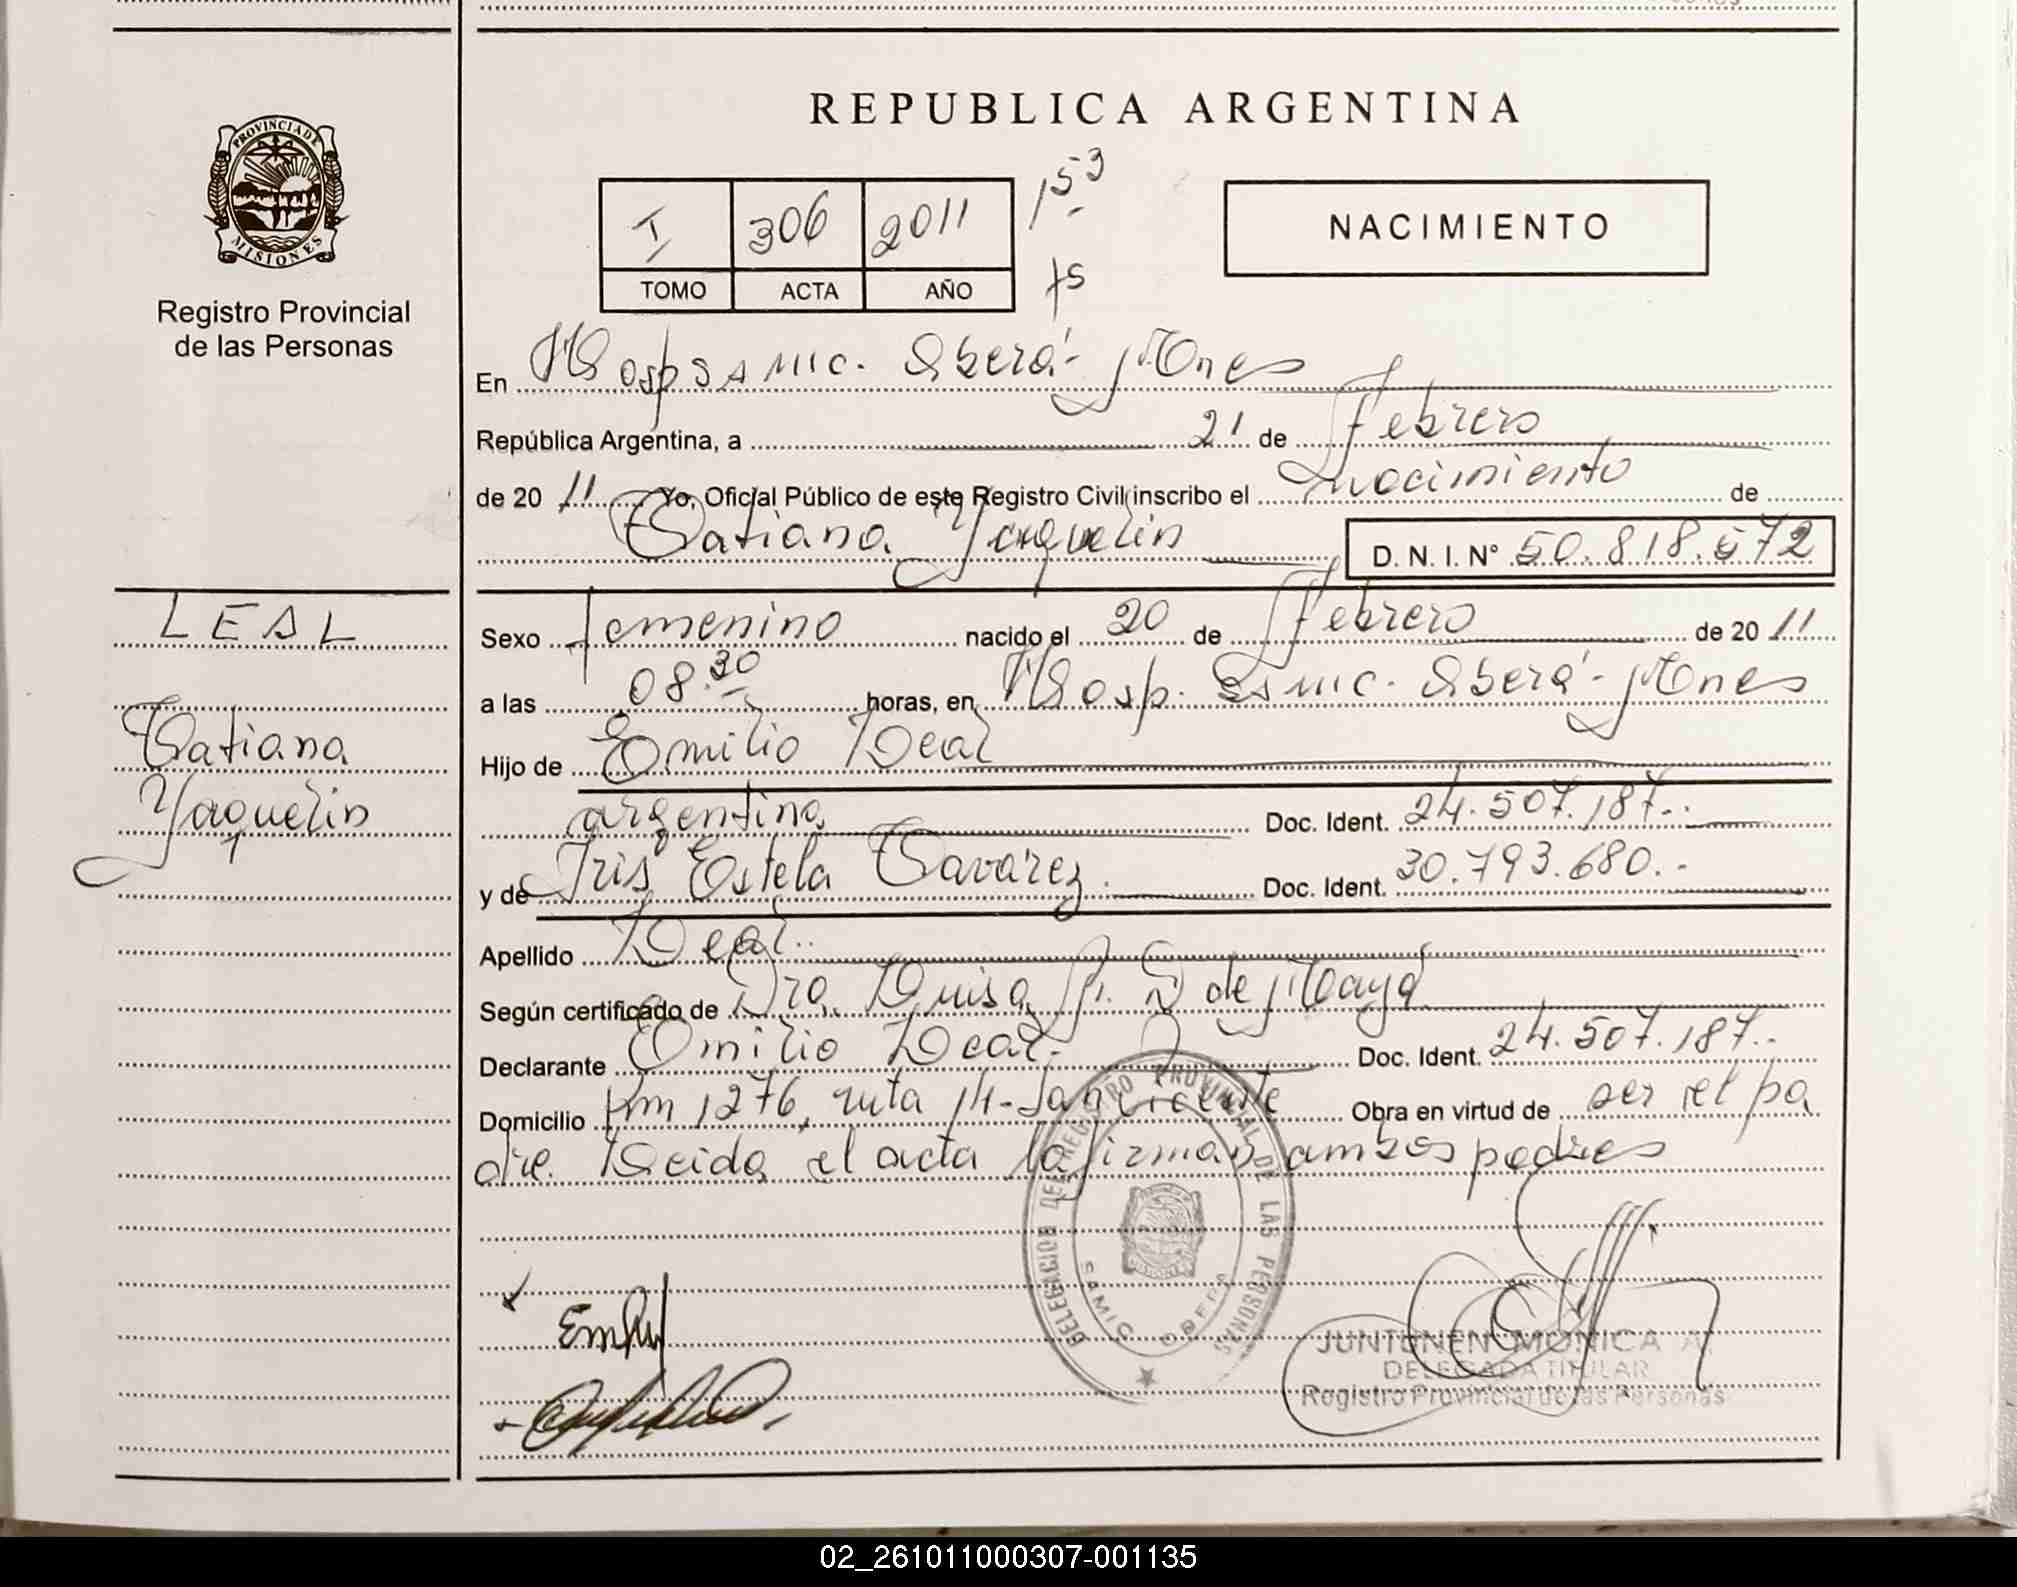 REPUBLICA ARGENTINA
PROVINCIA DE
MISIONES
Registro Provincial
de las Personas
I 306 2011 153
TOMO ACTA AÑO
NACIMIENTO
En Hosp SAMIC. Oberá - Mnes
República Argentina, a 21 de Febrero
de 20 11 Yo, Oficial Público de este Registro Civil inscribo el nacimiento de
Tatiana Yaquelin D. N. I. N° 50.818.572
LEAL
Tatiana
Yaquelin
Sexo femenino nacido el 20 de Febrero de 20 11
a las 08.30 horas, en Hosp. SAMIC. Oberá - Mnes
Hijo de Emilio Leal
argentino Doc. Ident. 24.507.187.-
y de Iris Estela Tavarez. Doc. Ident. 30.793.680.-
Apellido Leal.
Según certificado de Dra. Luisa de
Declarante Emilio Leal. Doc. Ident. 24.507.187.-
Domicilio Km 1276, ruta 14 - San Vicente Obra en virtud de ser el pa
dre. Leida el acta la firman ambos padres
DELEGACION DEL REGISTRO PROVINCIAL DE LAS PERSONAS
SAMIC OBERA
JUNTUNEN MONICA A.
DELEGADA TITULAR
Registro Provincial de las Personas
02_261011000307-001135